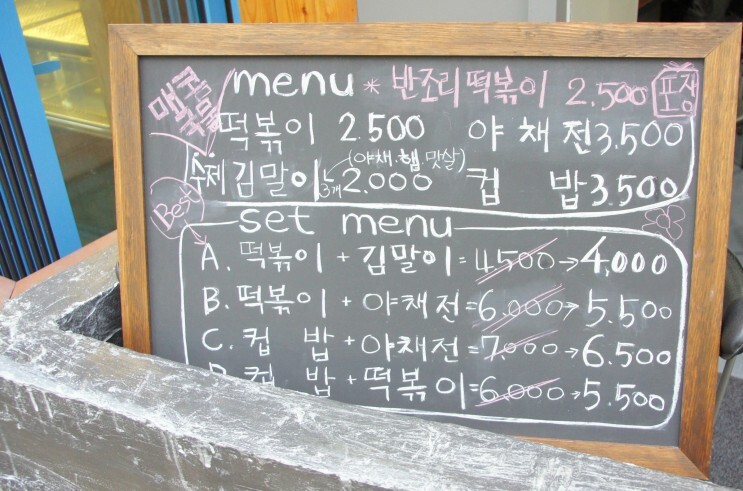 매콤
국물
menu * 반조리떡볶이 2.500 포장
떡볶이 2.500 야채전 3.500
(야채.햄.맛살)
수제 김말이 3개 2.000 컵 밥 3.500
Best
set menu
A. 떡볶이 + 김말이 = 4,500 → 4,000
B. 떡볶이 + 야채전 = 6.000 → 5.500
C. 컵 밥 + 야채전 = 7,000 → 6.500
컵 밥 + 떡볶이 = 6,000 → 5.500